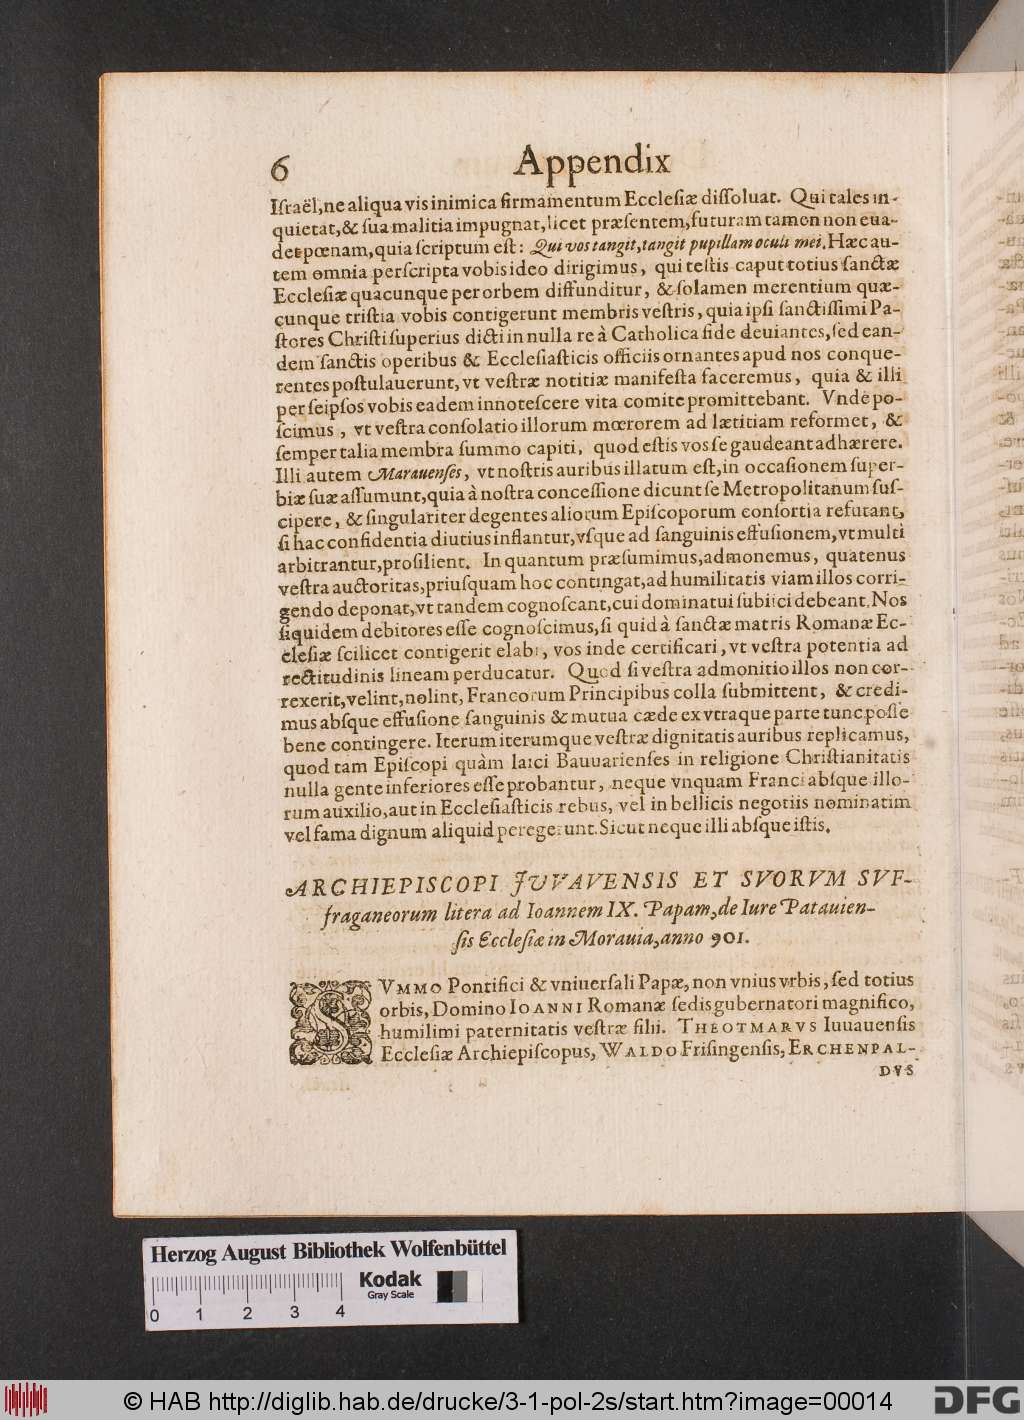 6 Appendix
Iſraël, ne aliqua vis inimica firmamentum Eccleſiæ diſſoluat. Qui tales in-
quietat, & ſua malitia impugnat, licet præſentem, futuram tamen non eua-
det pœnam, quia ſcriptum eſt: Qui vos tangit, tangit pupillam oculi mei. Hæc au-
tem omnia perſcripta vobis ideo dirigimus, qui teſtis caput totius ſanctæ
Eccleſiæ quacunque per orbem diffunditur, & ſolamen merentium quæ-
cunque triſtia vobis contigerunt membris veſtris, quia ipſi ſanctiſſimi Pa-
ſtores Chriſti ſuperius dicti in nulla re à Catholica fide deuiantes, ſed ean-
dem ſanctis operibus & Eccleſiaſticis officiis ornantes apud nos conque-
rentes poſtulauerunt, vt veſtræ notitiæ manifeſta faceremus, quia & illi
per ſeipſos vobis eadem innoteſcere vita comite promittebant. Vnde po-
ſcimus, vt veſtra conſolatio illorum mœrorem ad lætitiam reformet, &
ſemper talia membra ſummo capiti, quod eſtis vos ſe gaudeant adhærere.
Illi autem Marauenſes, vt noſtris auribus illatum eſt, in occaſionem ſuper-
biæ ſuæ aſſumunt, quia à noſtra conceſſione dicunt ſe Metropolitanum ſuſ-
cipere, & ſingulariter degentes aliorum Epiſcoporum conſortia refutant,
ſi hac confidentia diutius inflantur, vſque ad ſanguinis effuſionem, vt multi
arbitrantur, proſilient. In quantum præſumimus, admonemus, quatenus
veſtra auctoritas, priuſquam hoc contingat, ad humilitatis viam illos corri-
gendo deponat, vt tandem cognoſcant, cui dominatui ſubiici debeant. Nos
ſiquidem debitores eſſe cognoſcimus, ſi quid à ſanctæ matris Romanæ Ec-
cleſiæ ſcilicet contigerit elabi, vos inde certificari, vt veſtra potentia ad
rectitudinis lineam perducatur. Quod ſi veſtra admonitio illos non cor-
rexerit, velint, nolint, Francorum Principibus colla ſubmittent, & credi-
mus abſque effuſione ſanguinis & mutua cæde ex vtraque parte tunc poſſe
bene contingere. Iterum iterumque veſtræ dignitatis auribus replicamus,
quod tam Epiſcopi quàm laici Bauuarienſes in religione Chriſtianitatis
nulla gente inferiores eſſe probantur, neque vnquam Franci abſque illo-
rum auxilio, aut in Eccleſiaſticis rebus, vel in bellicis negotiis nominatim
vel fama dignum aliquid peregerunt. Sicut neque illi abſque iſtis.
ARCHIEPISCOPI JUVAVENSIS ET SVORVM SVF-
fraganeorum litera ad Ioannem IX. Papam, de Iure Patauien-
ſis Eccleſiæ in Morauia, anno 901.
SVMMO Pontifici & vniuerſali Papæ, non vnius vrbis, ſed totius
orbis, Domino IOANNI Romanæ ſedis gubernatori magnifico,
humilimi paternitatis veſtræ filii. THEOTMARVS Iuuauenſis
Eccleſiæ Archiepiſcopus, WALDO Friſingenſis, ERCHENPAL-
DVS
Herzog August Bibliothek Wolfenbüttel
Kodak
Gray Scale
0 1 2 3 4
© HAB http://diglib.hab.de/drucke/3-1-pol-2s/start.htm?image=00014
DFG